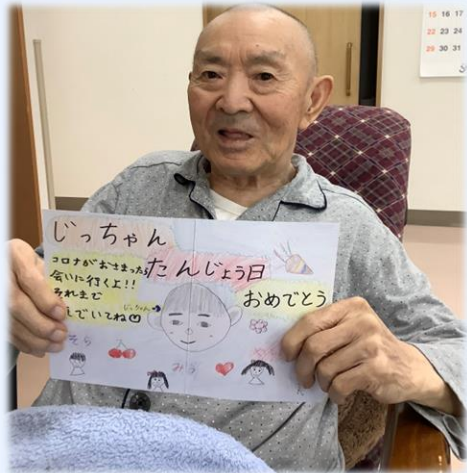 15 16 17
22 23 24
29 30 31
じっちゃん
たんじょう日
おめでとう
コロナがおさまったら
会いに行くよ!!
それまで
でいてね
じっちゃん
そら
みう